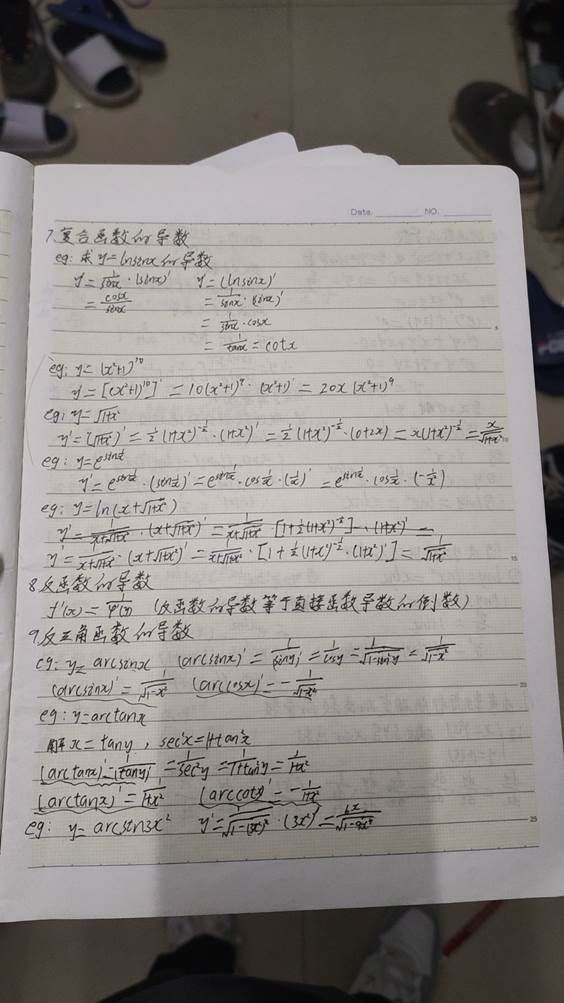 Date. NO.
7.复合函数的导数
eg: 求 y=lnsinx的导数
y'=1/sinx·(sinx)' y'=(lnsinx)'
=cosx/sinx =1/sinx·(sinx)'
=1/sinx·cosx
=1/tanx=cotx
eg: y=(x²+1)¹⁰
y'=[(x²+1)¹⁰]'=10(x²+1)⁹·(x²+1)'=20x(x²+1)⁹
eg: y=√1+x²
y'=(√1+x²)'=½(1+x²)^-½·(1+x²)'=½(1+x²)^-½·(0+2x)=x(1+x²)^-½=x/√1+x²
eg: y=e^sin1/x
y'=e^sin1/x·(sin1/x)'=e^sin1/x·cos1/x·(1/x)'=e^sin1/x·cos1/x·(-1/x²)
eg: y=ln(x+√1+x²)
y'=1/x+√1+x²·(x+√1+x²)'=1/x+√1+x²·[1+½(1+x²)^-½]·(1+x²)'=
y'=1/x+√1+x²·(x+√1+x²)'=1/x+√1+x²·[1+½(1+x²)^-½·(1+x²)']=1/√1+x²
8.反函数的导数
f'(x)=1/φ'(y) (反函数的导数等于直接函数导数的倒数)
9.反三角函数的导数
eg: y=arcsinx (arcsinx)'=1/(siny)'=1/cosy=1/√1-sin²y=1/√1-x²
(arcsinx)'=1/√1-x² (arccosx)'=-1/√1-x²
eg: y=arctanx
解 x=tany, sec²x=1+tan²x
(arctanx)'=1/(tany)'=1/sec²y=1/1+tan²y=1/1+x²
(arctanx)'=1/1+x² (arccotx)'=-1/1+x²
eg: y=arcsin3x² y'=1/√1-(3x²)²·(3x²)'=6x/√1-9x⁴